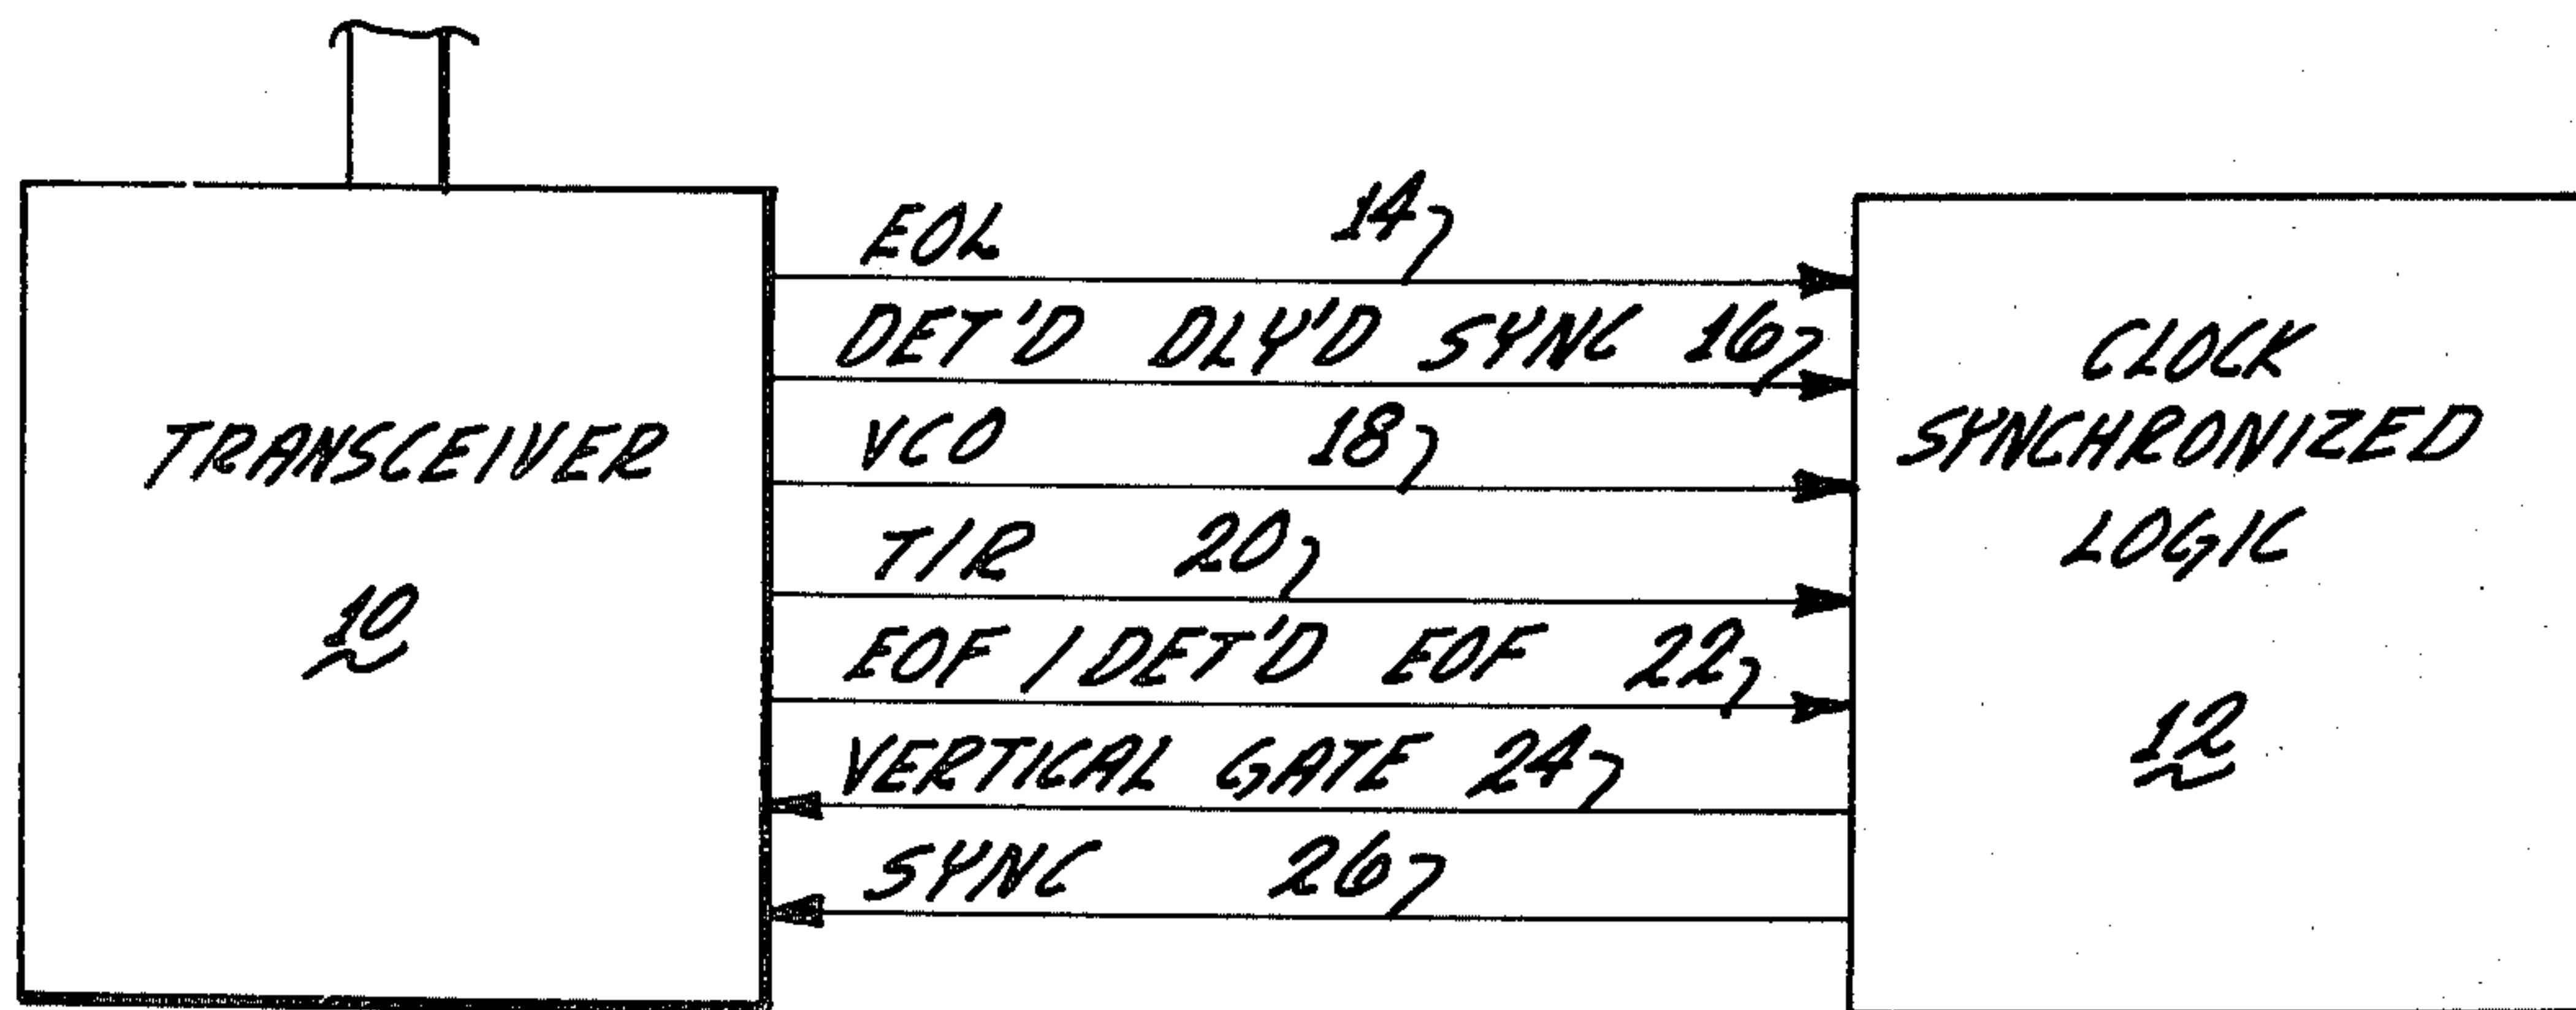 TRANSCEIVER
10
EOL 14
DET'D DLY'D SYNC 16
VCO 18
T/R 20
EOF / DET'D EOF 22
VERTICAL GATE 24
SYNC 26
CLOCK
SYNCHRONIZED
LOGIC
12